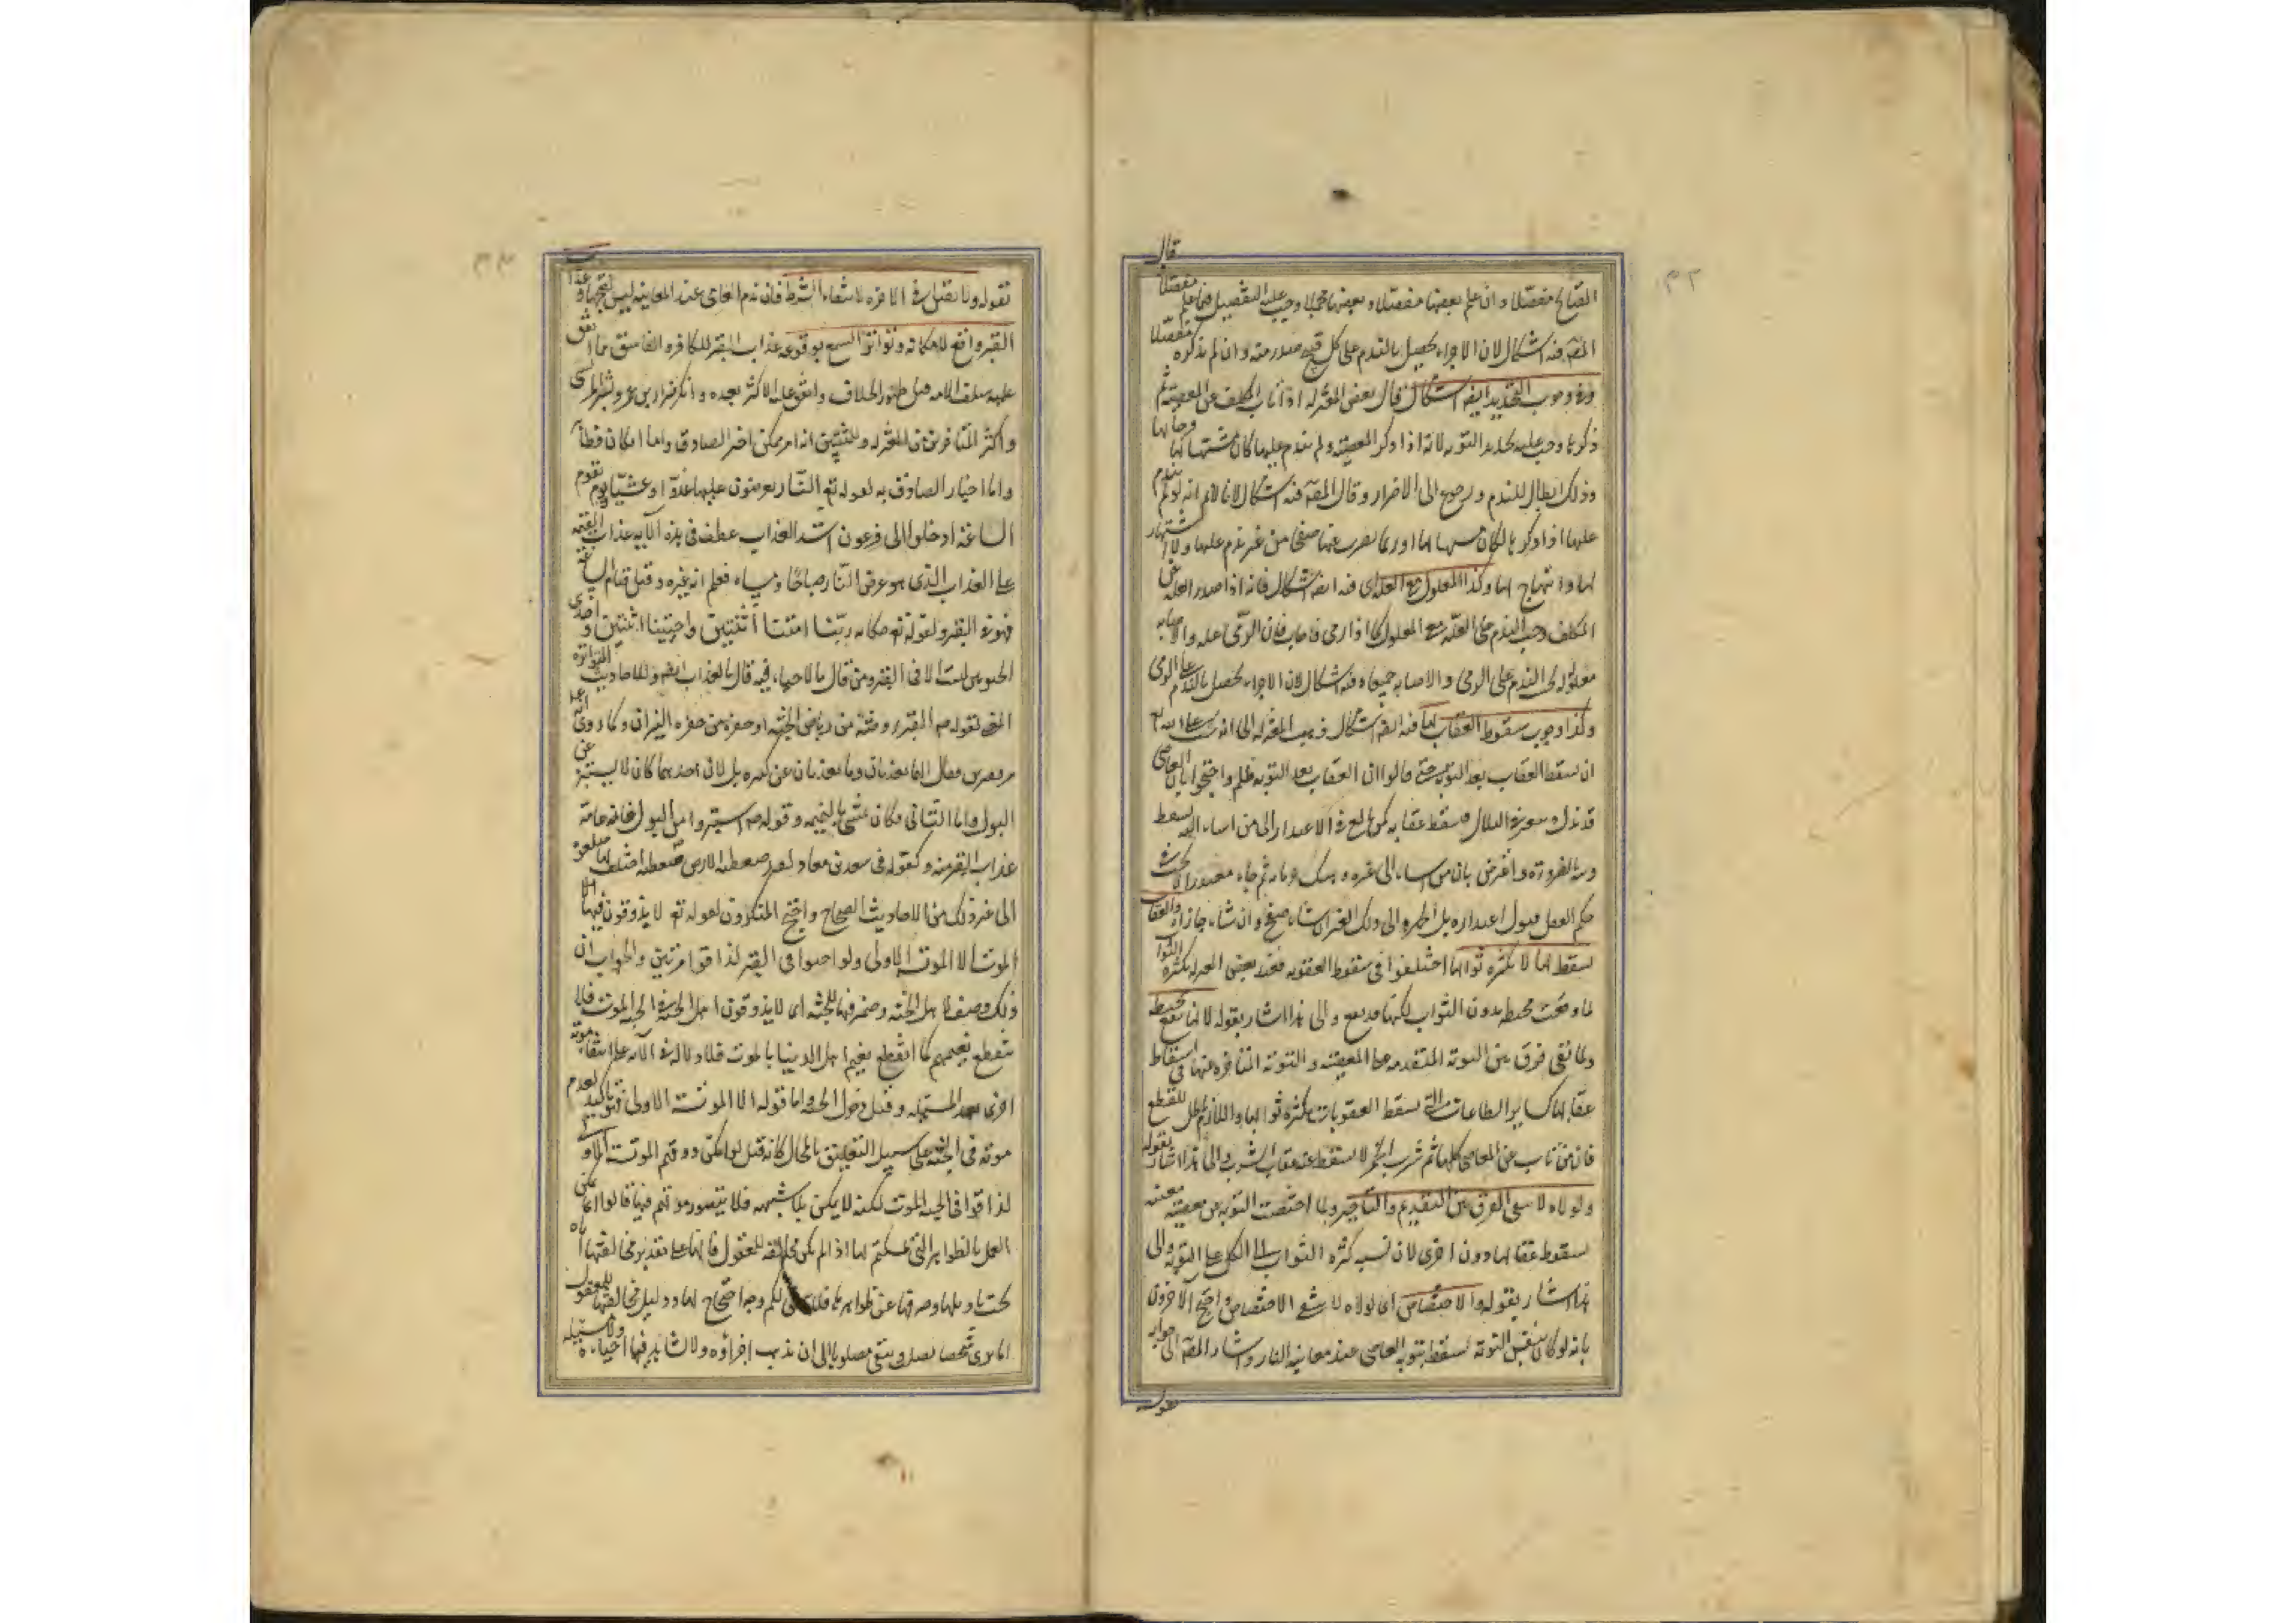 القبايح مفصلا وان علم بعضها مفصلا وبعضها مجملا وجب عليه التفصيل فيما علم مفصلا قال
المص فيه اشكال لان الاجزاء يحصل بالندم على كل قبيح صدر منه وان لم يذكره مفصلا
وفي وجوب التجديد ايضا اشكال قال بعض المعتزلة اذا تاب المكلف عن المعصية ثم
ذكرها وجب عليه تجديد التوبة لانه اذا ذكر المعصية ولم يندم عليها كان مشتهيا لها وفرحا بها
وذلك ابطال للندم ورجوع الى الاضرار وقال المص فيه اشكال لانا لانم انه لو لم يندم
عليها اذا ذكرها لكان مشتهيا لها اذ ربما يضرب عنها صفحا من غير ندم عليها ولا اشتهاء
لها ولا ابتهاج بها وكذا المعلول مع العلة اي فيه ايضا اشكال فانه اذا صدر العلة عن
المكلف وجب الندم على العلة مع المعلول كما اذا رمى فاصاب فان الرمي علة والاصابة
معلوله يجب الندم على الرمي والاصابة جميعا وفيه اشكال لان الاجزاء يحصل بالندم على الرمي
وكذا وجوب سقوط العقاب بها فيه ايضا اشكال ذهب المعتزلة الى انه يجب على الله تع
ان يسقط العقاب بعد التوبة حتى قالوا ان العقاب بعد التوبة ظلم واحتجوا بان العاصي
قد بذل وسعه في التلافي فيسقط عقابه كمن بالغ في الاعتذار الى من اساء اليه يسقط
ذنبه بالضرورة واعترض بان من اساء الى غيره وهتك حرماته ثم جاء معتذرا لا يجب في
حكم العقل قبول اعتذاره بل الخيرة الى ذلك الغير ان شاء صفح وان شاء جازاه والعقاب
يسقط بها لا بكثرة ثوابها اختلفوا في سقوط العقوبة فعند بعض المعتزلة بكثرة الثواب
لما وقعت محبطة بدون الثواب لكنها قد يقع والى هذا اشار بقوله لانها تقع محبطة
ولما بقي فرق بين التوبة المتقدمة على المعصية والتوبة المتاخرة عنها في اسقاط
عقابها كساير الطاعات التي يسقط العقوبات بكثرة ثوابها واللازم بطل للقطع
فان من تاب عن المعاصي كلها ثم شرب الخمر لا يسقط عنه عقاب الشرب والى هذا اشار بقوله
ولولاه لانتفى الفرق بين التقديم والتاخير ولما اختصت التوبة من معصية معينة
بسقوط عقابها دون اخرى لان نسبة كثرة الثواب الى الكل على السوية والى
هذا اشار بقوله والاختصاص اي لولاه لانتفى الاختصاص واحتج الآخرون
بانه لو كان بنفس التوبة لسقط بتوبة العاصي عند معاينة النار واشار المص الى جوابه
بقوله
بقوله ولا يقبل في الآخرة لانتفاء الشرط فان ندم العاصي عند المعاينة ليس لقبحها وعذاب
القبر واقع لامكانه وتواتر السمع بوقوعه عذاب القبر للكافر والفاسق مما اتفق
عليه سلف الامة قبل ظهور الخلاف واتفق عليه الاكثر بعده وانكره ضرار بن عمرو وبشر المريسي
واكثر المتاخرين من المعتزلة وللمثبتين انه امر ممكن اخبر الصادق واما امكانه فظاهر
واما اخبار الصادق به لقوله تع النار يعرضون عليها غدوا وعشيا ويوم تقوم
الساعة ادخلوا ال فرعون اشد العذاب عطف في هذه الآية عذاب القيمة
على العذاب الذي هو عرض النار صباحا ومساء فعلم انه غيره وقبل قيام الساعة
فهو في القبر ولقوله تع حكاية ربنا امتنا اثنتين واحييتنا اثنتين واحدى
الحيوتين ليست الا في القبر ومن قال بالاحياء فيه قال بالعذاب ايضا وللاحاديث المتواترة
المعنى لقوله صم القبر روضة من رياض الجنة او حفرة من حفر النيران وكما روي انه
مر بقبرين فقال انهما يعذبان وما يعذبان عن كبيرة بل لان احدهما كان لا يستنزه عن
البول واما الثاني فكان يمشي بالنميمة وقوله صم استنزهوا من البول فان عامة
عذاب القبر منه وكقوله في سعد بن معاذ لقد ضغطته الارض ضغطة اختلف لها ضلوعه
الى غير ذلك من الاحاديث الصحاح واحتج المنكرون لقوله تع لا يذوقون فيها
الموت الا الموتة الاولى ولو احيوا في القبر لذاقوا مرتين والجواب ان
ذلك وصف لاهل الجنة وضمير فيها للجنة اي لا يذوقون اهل الجنة في الجنة الموت فلا
ينقطع نعيمهم كما انقطع نعيم اهل الدنيا بالموت فلا دلالة في الآية على انتفاء موتة
اخرى بعد المسئلة وقبل دخول الجنة واما قوله الا الموتة الاولى فتاكيد لعدم
موته في الجنة على سبيل التعليق بالمحال كانه قيل لو امكن ذوقهم الموتة الاولى
لذاقوا في الجنة الموت لكنه لا يمكن بلا شبهه فلا يتصور موتهم فيها قالوا انما يمكن
العمل بالظواهر التي تمسكتم بها اذا لم يكن مخالفة للعقول فانها على تقدير مخالفتها اياه
يجب تاويلها وصرفها عن ظواهرها فلا يبقى لكم وجه احتجاج بها ودليل مخالفتها للمعقول
انا نرى شخصا يصلب ويبقى مصلوبا الى ان يذهب اجزاؤه ولا نشاهد فيها احياء ولا مسئلة